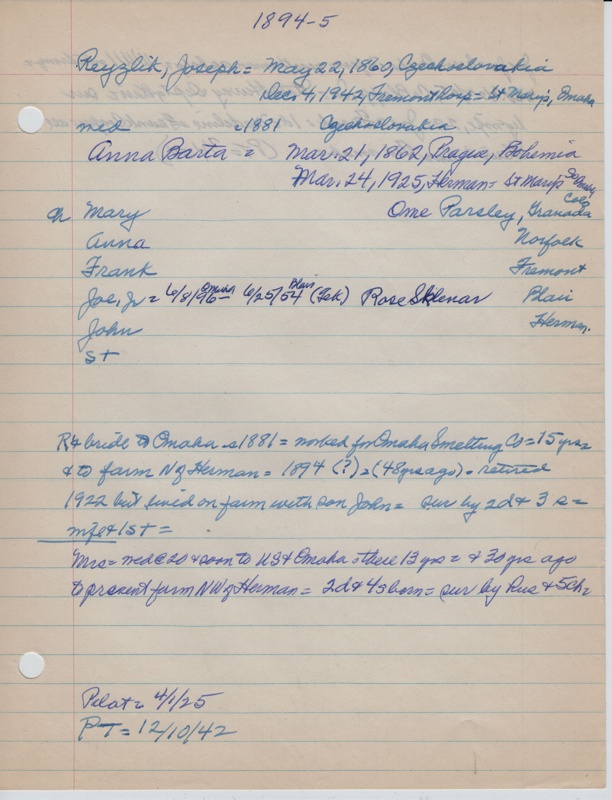 1894-5
Reyzlik, Joseph = May 22, 1860, Czechoslovakia
Dec. 4, 1942, Fremont hosp = St Mary's, Omaha
med 1881 Czechoslovakia
Anna Barta = Mar. 21, 1862, Prague, Bohemia
Mar. 24, 1925, Herman = St Mary's So Omaha
Ch Mary Ome Parsley, Granada Colo
Anna Norfolk
Frank Fremont
Joe, Jr = 6/8/96 Omaha 6/25/54 Blair (Tek) Rose Sklenar Blair
John Herman.
St
R & bride to Omaha 1881 = worked for Omaha Smelting Co = 15 yrs =
& to farm N of Herman = 1894 (?) = (48 yrs ago) = retired
1922 but lived on farm with son John = sur by 2d & 3 s =
wife & 1 st =
Mrs = med @ 20 & soon to US & Omaha = there 13 yrs = & 30 yrs ago
to present farm NW of Herman = 2d & 4s born = sur by hus & 5 ch =
Pilot = 4/1/25
PT = 12/10/42